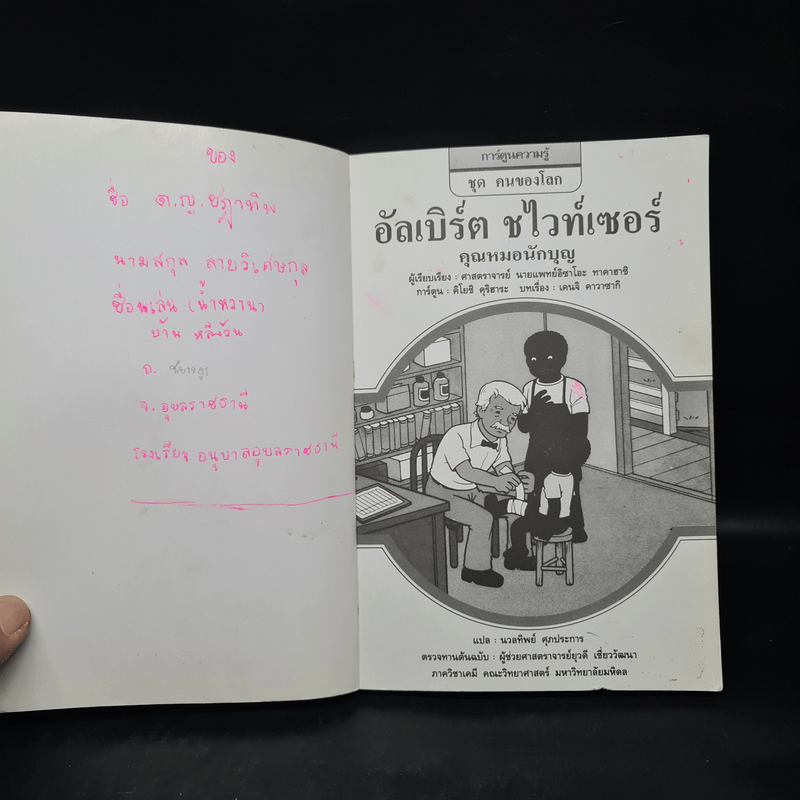 ของ
ชื่อ ด.ญ.ชฎาทิพ
นามสกุล สายวิเศษกุล
ชื่อเล่น (น้ำหวาน)
บ้าน
ถ. ชยางกูร
จ. อุบลราชธานี
โรงเรียน อนุบาลอุบลราชธานี
การ์ตูนความรู้
ชุด คนของโลก
อัลเบิร์ต ชไวท์เซอร์
คุณหมอนักบุญ
ผู้เรียบเรียง : ศาสตราจารย์ นายแพทย์อิซาโอะ ทาคาฮาชิ
การ์ตูน : คิโยชิ คุริฮาระ บทเรื่อง : เคนจิ คาวาซากิ
แปล : นวลทิพย์ ศุภประการ
ตรวจทานต้นฉบับ : ผู้ช่วยศาสตราจารย์ยุวดี เชี่ยววัฒนา
ภาควิชาเคมี คณะวิทยาศาสตร์ มหาวิทยาลัยมหิดล